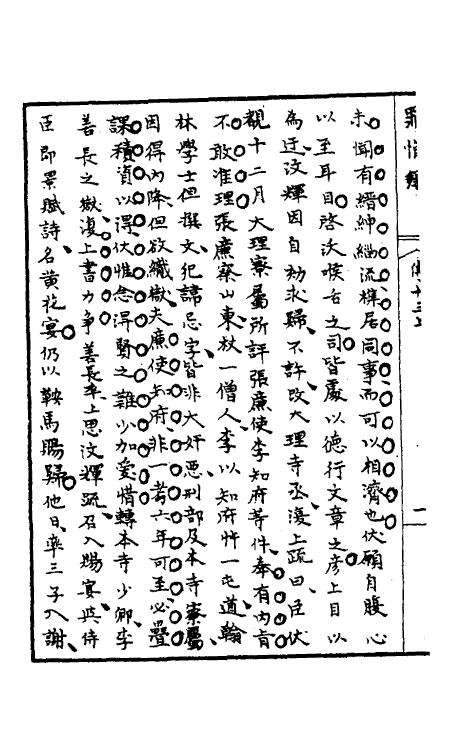 罪惟錄
傳十三上
一
未聞有縉紳緇流櫟居同事而可以相濟也伏願自腹心
以至耳目啓沃喉舌之司皆處以德行文章之彥上目以
為迂汶輝因自劾求歸不許改大理寺丞復上疏曰臣伏
覩十二月大理寮屬所評張廉使李知府等件奉有內旨
不敢准理張廉察山東杖一僧人李以知府忤一屯道翰
林學士但撰文犯諱忌字皆非大奸惡刑部及本寺寮屬
因得內降但欲織獄夫廉使知府非一考六年可至必疊
課積資以得伏惟念得賢之難少加愛惜轉本寺少卿李
善長之獄復上書力爭善長卒上思汶輝疏召入賜宴與侍
臣即景賦詩名黃花宴仍以鞍馬賜歸他日率三子入謝